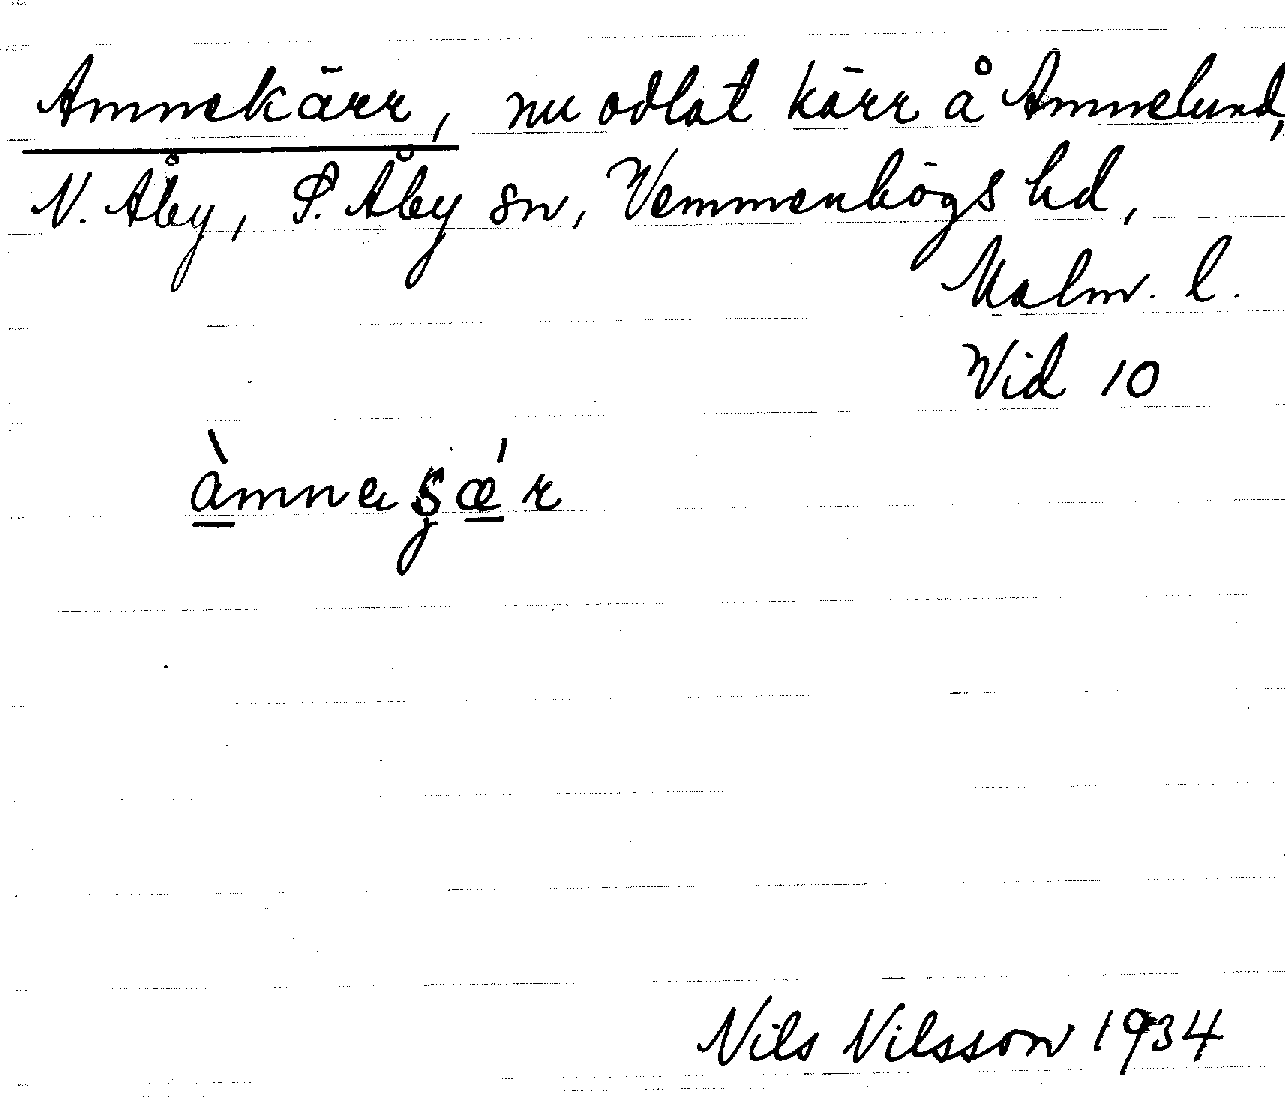 Amnekärr, nu odlat kärr å Amnelund,
N. Åby, S. Åby sn, Vemmenhögs hd,
Malm. l.
Vid 10
Nils Nilsson 1934